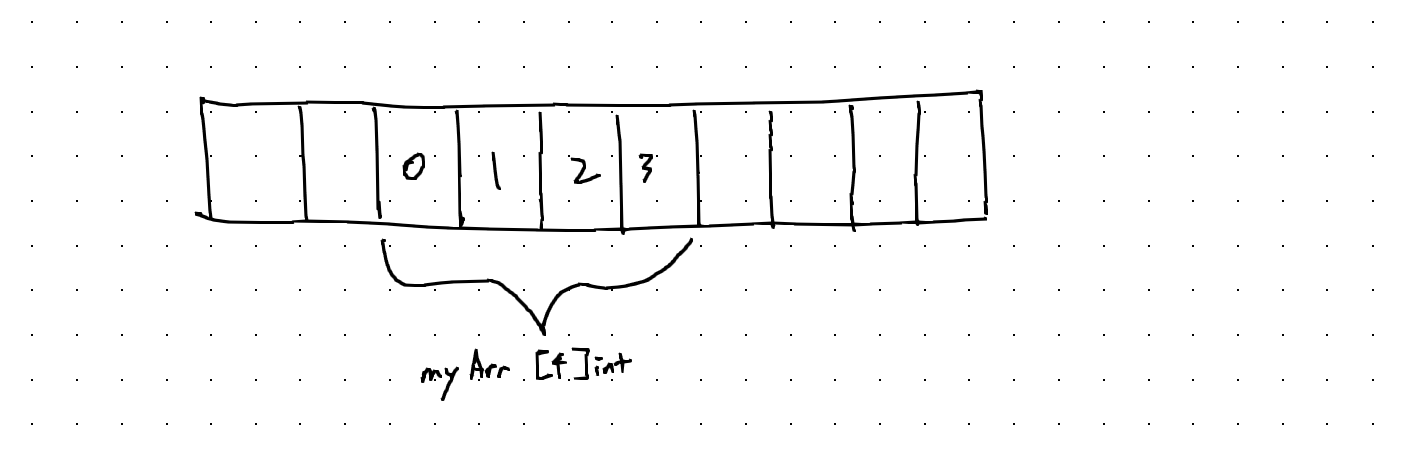 0 1 2 3
myArr [4]int